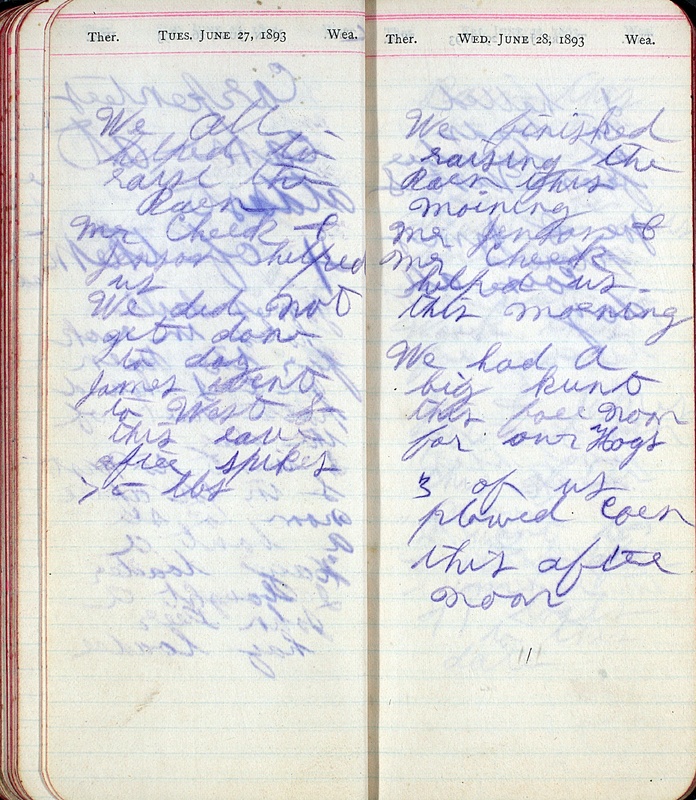 Ther. TUES. JUNE 27, 1893 Wea.
We all
helped to
raise the
Baen
Mr Cheek &
Jenson helped
us
We did not
get done
to day
James went
to West
this eav
aftee spikes
lbs
Ther. WED. JUNE 28, 1893 Wea.
We finished
raising the
Baen this
moining
Mr Jenson &
Mr Cheek
helped us
this moening
We had a
big hunt
this foee noon
for owr Hogs
3 of us
plowed Coen
this aftee
noon